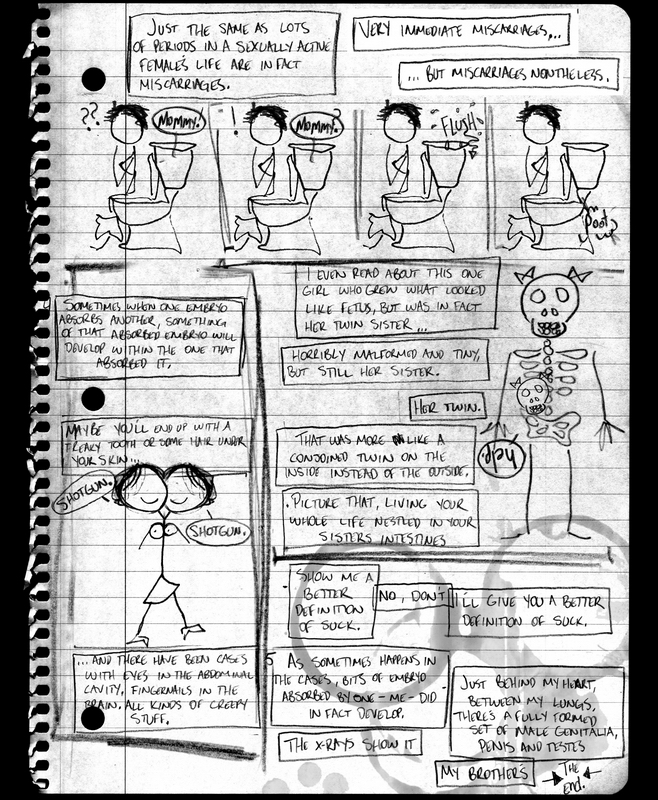 JUST THE SAME AS LOTS
OF PERIODS IN A SEXUALLY ACTIVE
FEMALE'S LIFE ARE IN FACT
MISCARRIAGES.
VERY IMMEDIATE MISCARRIAGES...
...BUT MISCARRIAGES NONTHELESS.
??
MOMMY!
!
MOMMY?
FLUSH
POOT
I EVEN READ ABOUT THIS ONE
GIRL WHO GREW WHAT LOOKED
LIKE FETUS, BUT WAS IN FACT
HER TWIN SISTER...
HORRIBLY MALFORMED AND TINY,
BUT STILL HER SISTER.
HER TWIN.
THAT WAS MORE LIKE A
CONJOINED TWIN ON THE
INSIDE INSTEAD OF THE OUTSIDE.
help.
PICTURE THAT, LIVING YOUR
WHOLE LIFE NESTLED IN YOUR
SISTERS INTESTINES
SOMETIMES WHEN ONE EMBRYO
ABSORBS ANOTHER, SOMETHING
OF THAT ABSORBED EMBRYO WILL
DEVELOP WITHIN THE ONE THAT
ABSORBED IT.
MAYBE YOU'LL END UP WITH A
FREAKY TOOTH OR SOME HAIR UNDER
YOUR SKIN...
SHOTGUN.
SHOTGUN.
...AND THERE HAVE BEEN CASES
WITH EYES IN THE ABDOMINAL
CAVITY, FINGERNAILS IN THE
BRAIN. ALL KINDS OF CREEPY
STUFF.
SHOW ME A
BETTER
DEFINITION
OF SUCK.
NO, DON'T
I'LL GIVE YOU A BETTER
DEFINITION OF SUCK.
AS SOMETIMES HAPPENS IN
THE CASES, BITS OF EMBRYO
ABSORBED BY ONE - ME - DID
IN FACT DEVELOP.
THE X-RAYS SHOW IT
JUST BEHIND MY HEART,
BETWEEN MY LUNGS.
THERE'S A FULLY FORMED
SET OF MALE GENITALIA,
PENIS AND TESTES
MY BROTHER'S
THE
END.